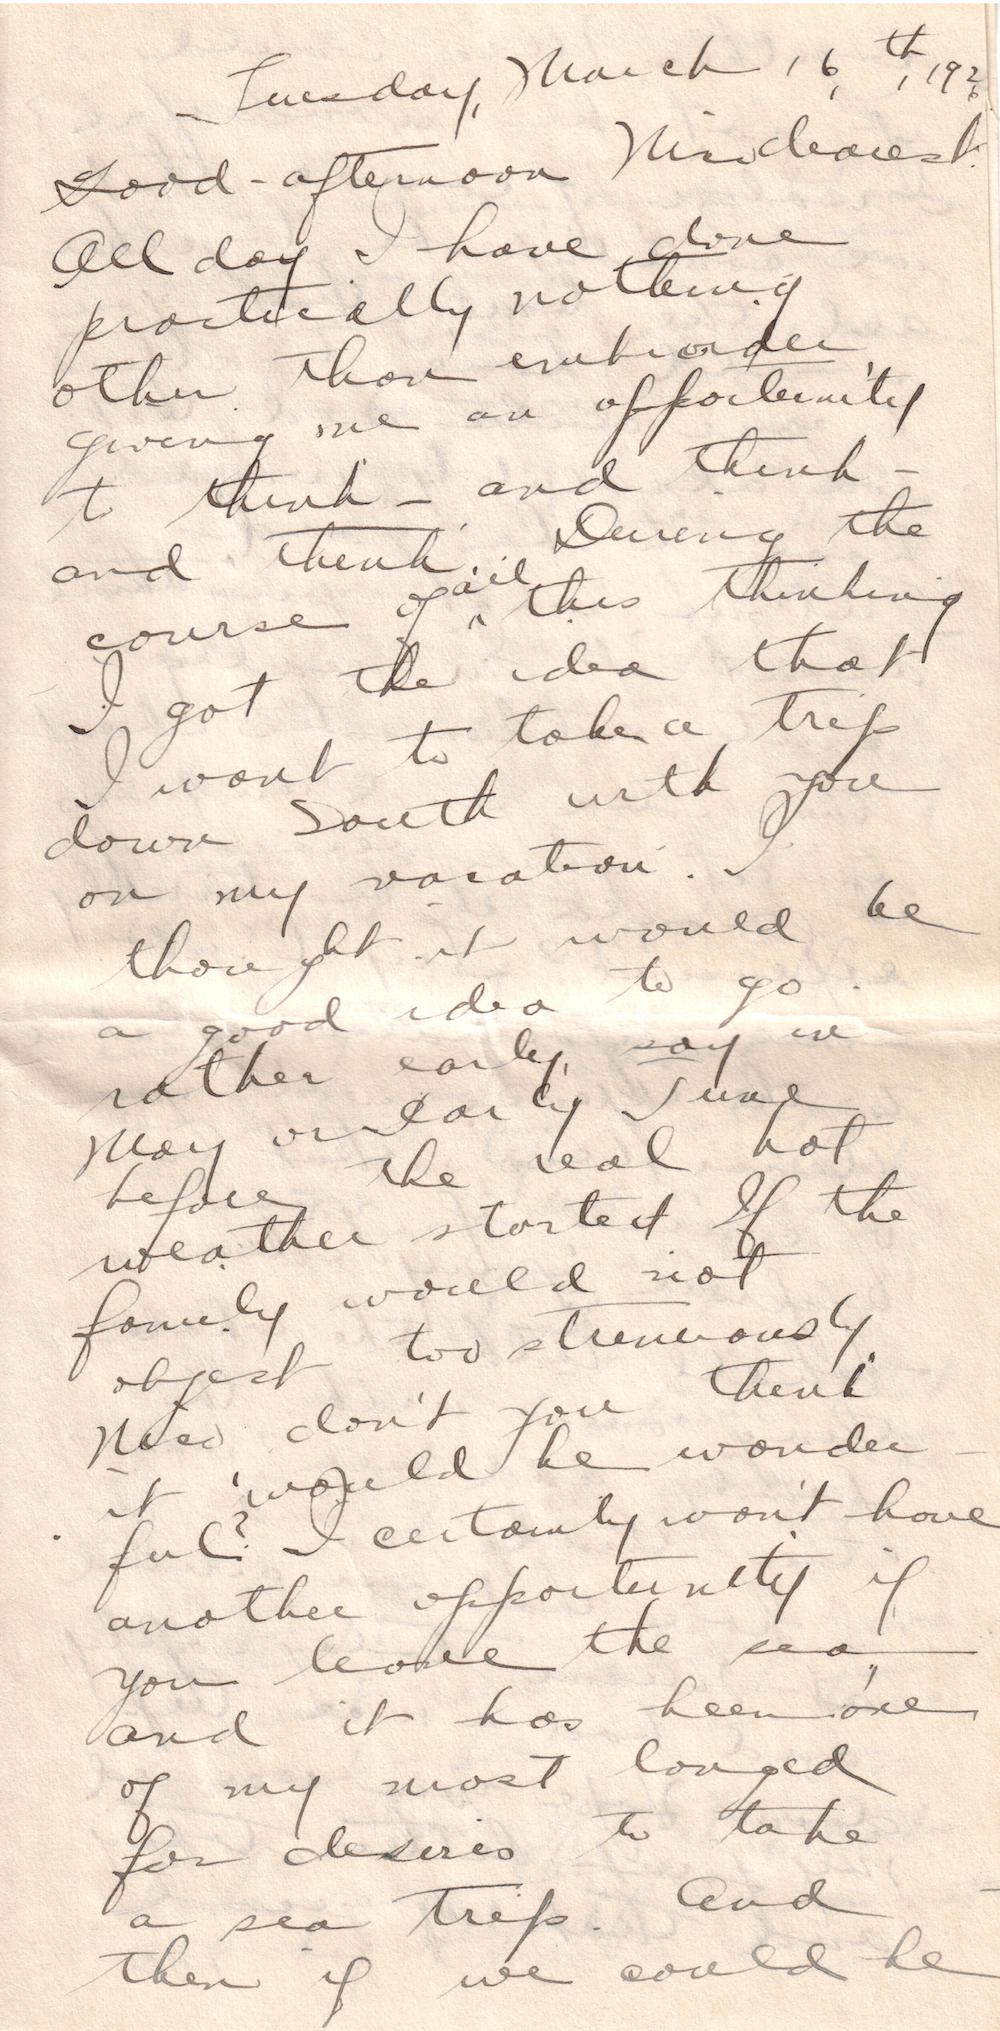 Tuesday, March 16th, 1926
Good-afternoon Niso dearest.
All day I have done
practically nothing
other than embroider,
giving me an opportunity
to think - and think -
and think. During the
course of all this thinking
I got the idea that
I want to take a trip
down South with you
on my vacation. I
thought it would be
a good idea to go
rather early, say in
May or early June
before the real hot
weather started If the
family would not
object too strenuously.
Niso don't you think
it would be wonder-
ful? I certainly won't have
another opportunity if
you leave the sea,
and it has been one
of my most longed
for desires to take
a sea trip. And
then if we could be